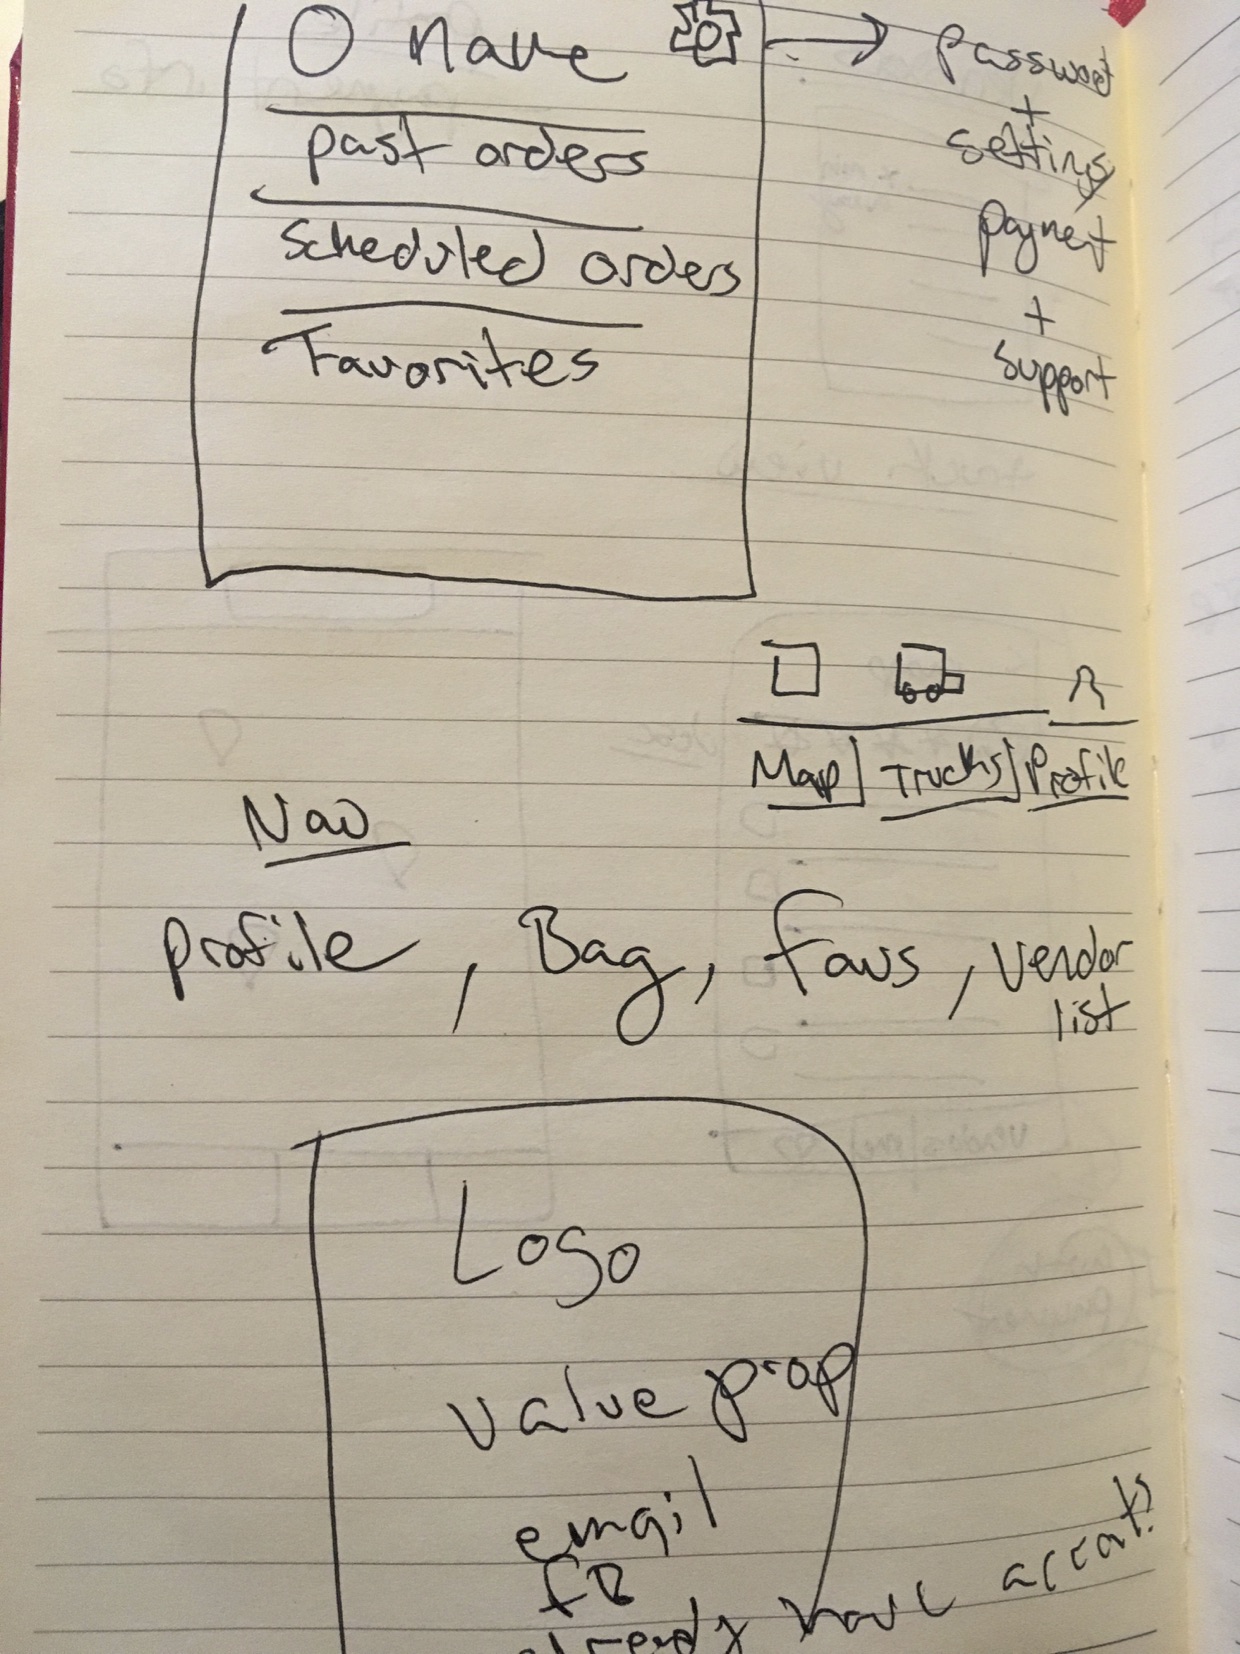 O Name
past orders
Scheduled orders
Favorites
password
+
settings
payment
+
support
Map | Trucks | Profile
Nav
profile, Bag, favs, vendor
list
Logo
value prop
email
FB
already have account?